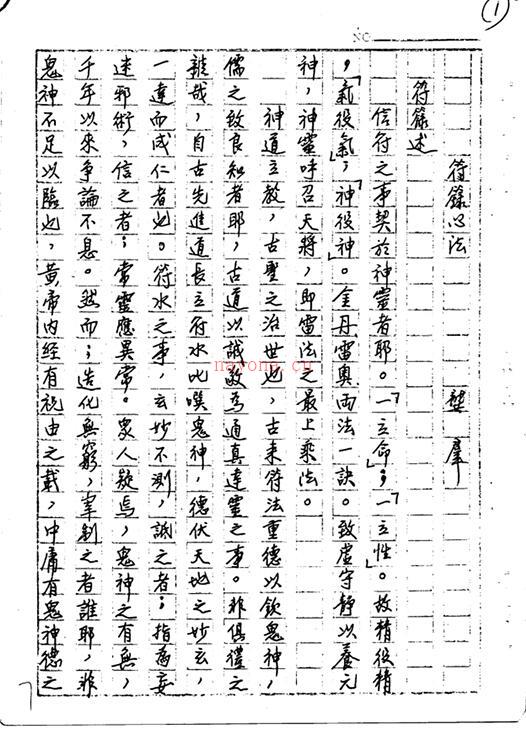 1
NO
符籙心法
龔 羣
符籙述
信符之事契於神靈者耶。「一立命」；「一立性」。故精役精
，「氣役氣」，「神役神」。金丹雷奧兩法一訣。致虛守靜以養元
神，神靈呼召天將，即雷法之最上乘法。
神道立教，古聖之治世也，古来符法重德以欽鬼神，
儒之致良知者耶，古道以誠敬為通真達靈之事。非俱禮之
辭哉，自古先進道長立符水叱嘆鬼神，德伏天地之妙玄，
一達而成仁者也。符水之事，玄妙不測，詆之者；指為妄
迷邪術，信之者；常靈應異常。眾人疑焉，鬼神之有無，
千年以來爭論不息。然而；造化無窮，宰制之者誰耶，非
鬼神不足以臨也，黃帝內经有祝由之載，中庸有鬼神德之
nayong.cn